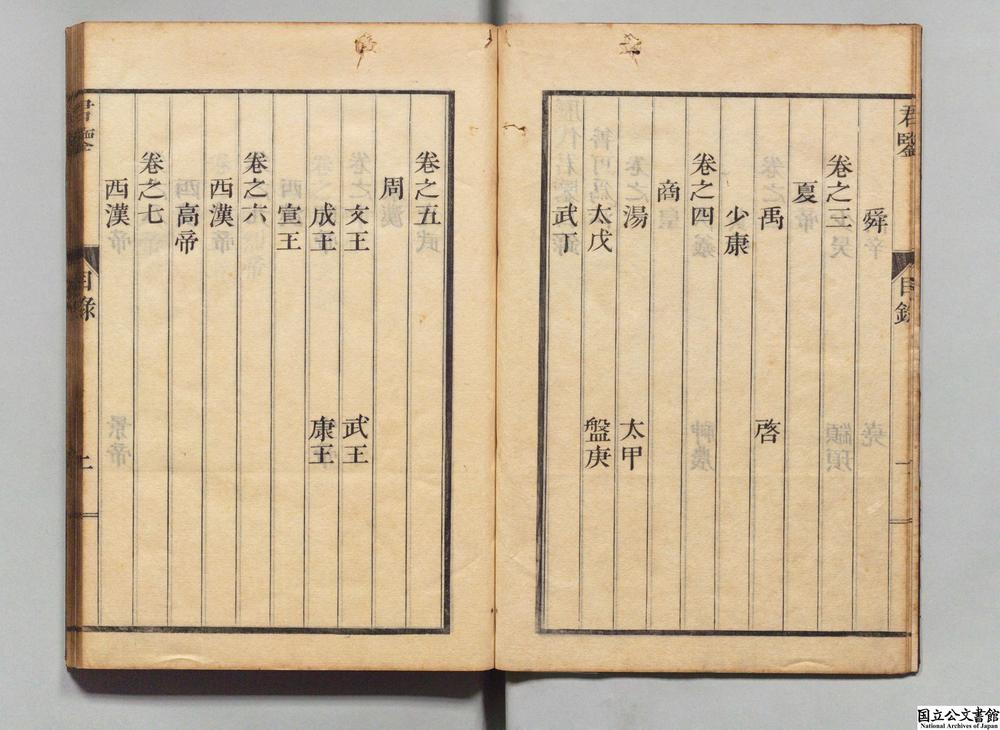 君鑒
目錄
一
舜
卷之三
夏
禹 啓
少康
卷之四
商
湯 太甲
太戊 盤庚
武丁
卷之五
周
文王 武王
成王 康王
宣王
卷之六
西漢
高帝
卷之七
西漢
君鑒
目錄
二
国立公文書館
National Archives of Japan